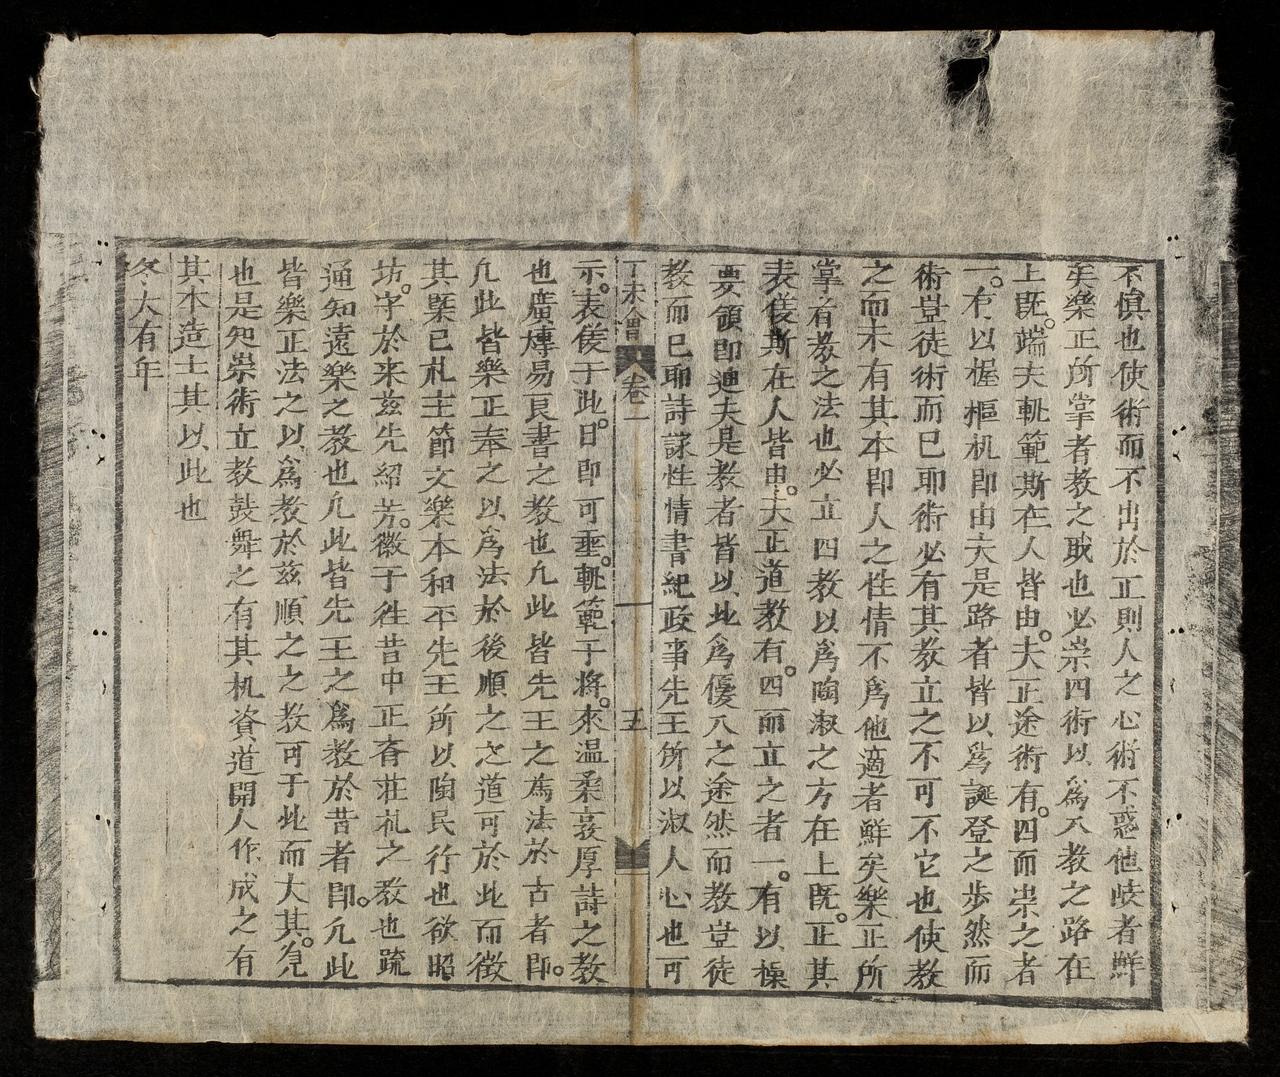 不慎也使術而不出於正則人之心術不惑他岐者鮮
矣樂正所掌者教之職也必崇四術以為入教之路在
上既端夫軌範斯在人皆由夫正途術有四而崇之者
一有以握樞机即由夫是路者皆以為誕登之步然而
術豈徒術而已耶術必有其教立之不可不它也使教
之而未有其本即人之性情不為他適者鮮矣樂正所
掌有教之法也必立四教以為陶淑之方在上既正其
表儀斯在人皆由夫正道教有四而立之者一有以操
要領即迪夫是教者皆以此為優入之途然而教豈徒
教而已耶詩詠性情書紀政事先王所以淑人心也可
丁未會 卷一 五
示表儀于此日即可垂軌範于將來温柔敦厚詩之教
也廣博易良書之教也凡此皆先王之為法於古者即
凡此皆樂正奉之以為法於後順之之道可於此而徵
其槩已札主節文樂本和平先王所以陶民行也欲昭
坊守於來兹先紹芳徽于徃昔中正斉荘札之教也䟽
通知遠樂之教也凡此皆先王之為教於昔者即凡此
皆樂正法之以為教於兹順之之教可于此而大其見
也是知崇術立教鼓舞之有其机資道開人作成之有
其本造士其以此也
冬大有年